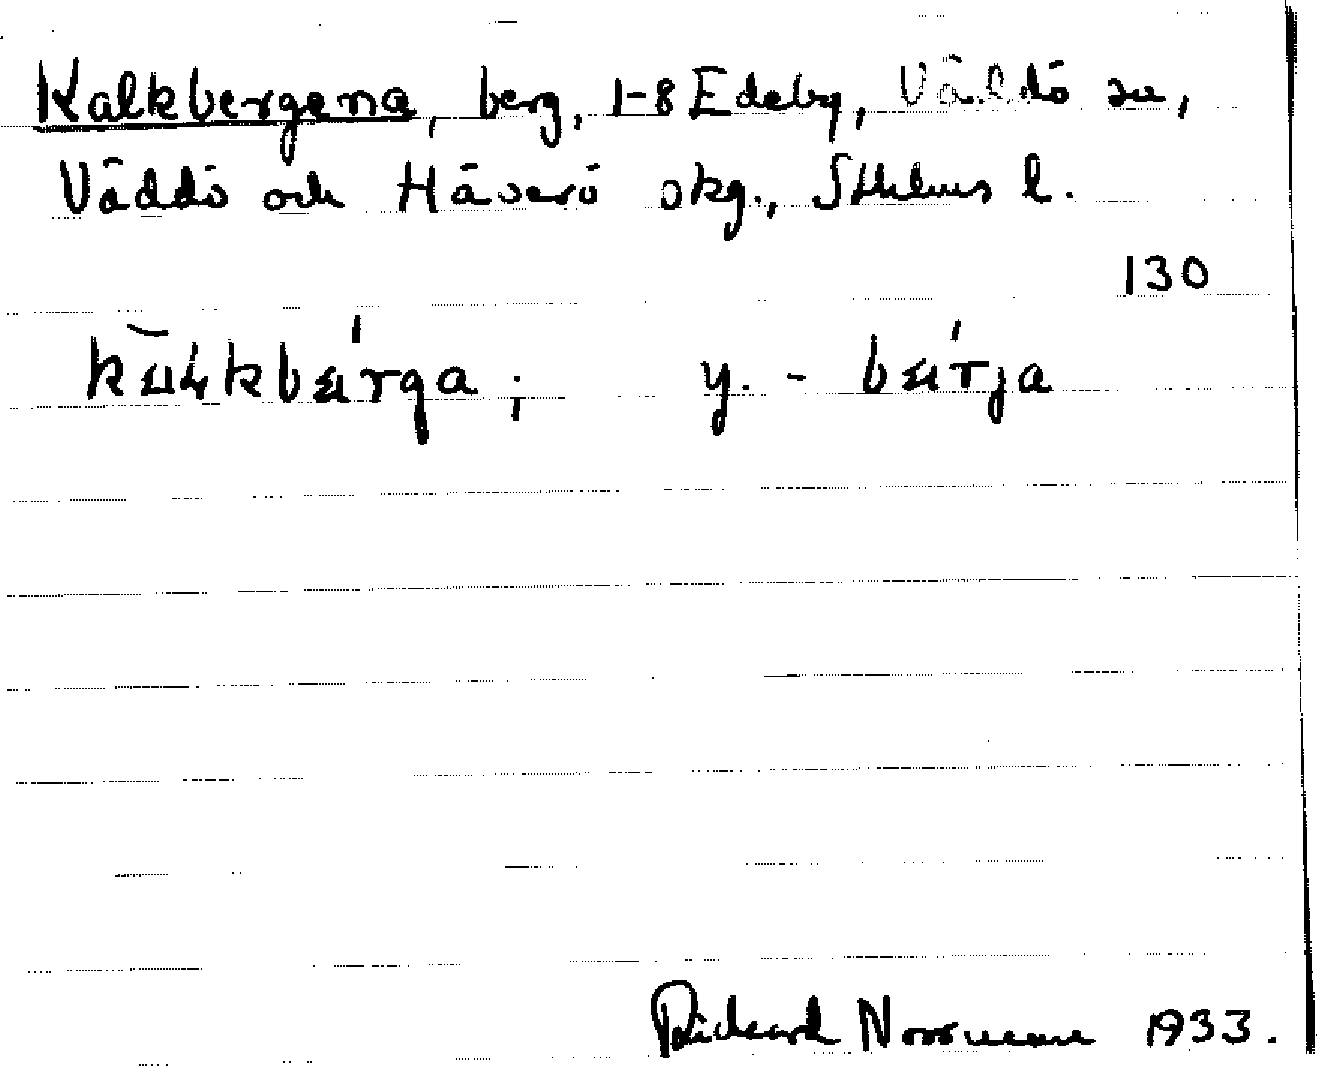 Kalkbergena, berg, 1-8 Edeby, Väddö sn,
Väddö och Häverö skg., Sthlms l.
130
y. -
Rickard Norrman 1933.